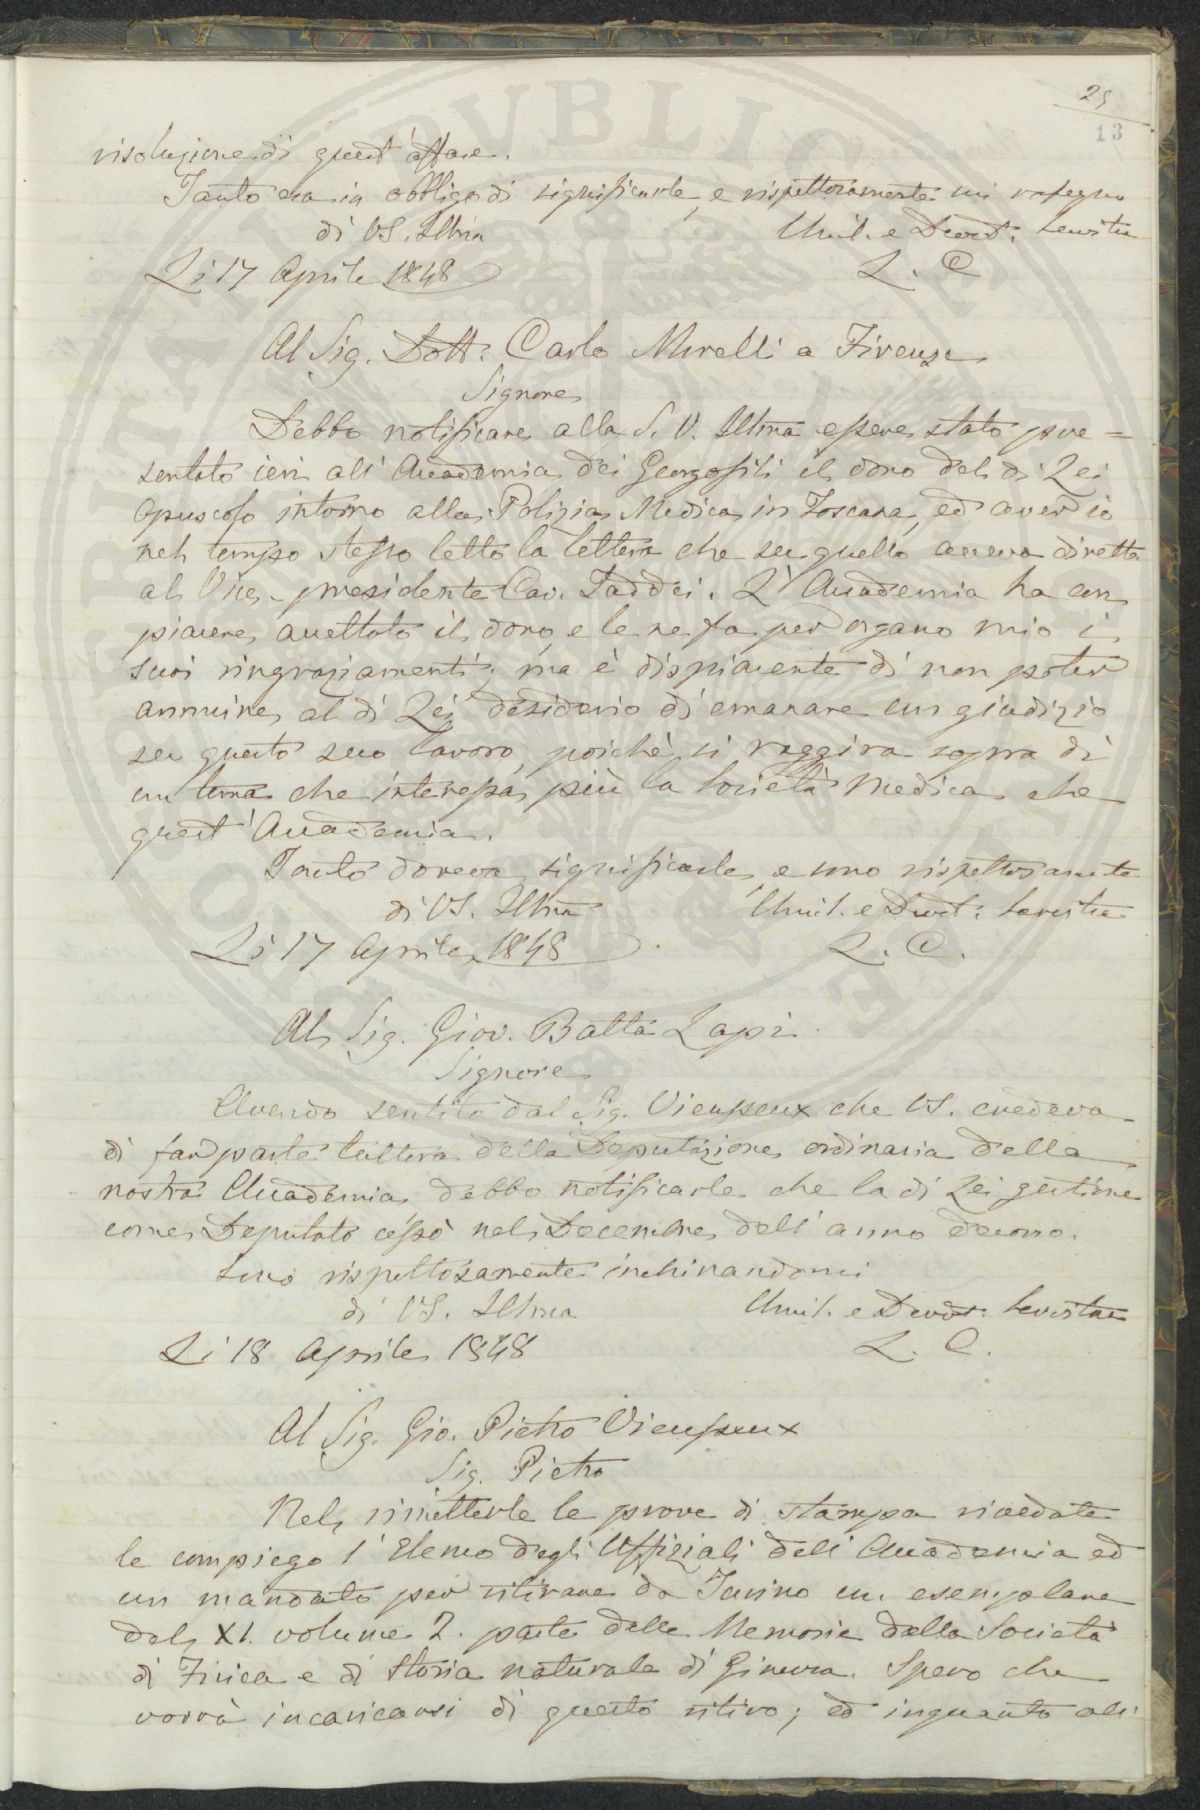 25
13
risoluzione di quest'affare.
Tanto era in obbligo di significarle, e rispettosamente mi rassegno
di VS. Illma Umil. e Devot: Servitre
Li 17 Aprile 1848 L. C.
Al Sig. Dott: Carlo Morelli a Firenze
Signore
Debbo notificare alla S. V. Illma essere stato pre=
sentato ieri all'Accademia dei Georgofili il dono del di Lei
Opuscolo intorno alla Polizia Medica in Toscana, ed aver io
nel tempo stesso letto la lettera che su quello aveva diretta
al Vice-presidente Cav. Taddei. L'Accademia ha con
piacere accettato il dono, e le ne fa per organo mio i
suoi ringraziamenti; ma è dispiacente di non poter
annuire al di Lei desiderio di emanare un giudizio
su questo suo lavoro, poichè si raggira sopra di
un tema che interessa più la Società Medica che
quest'Accademia.
Tanto doveva significarle, e sono rispettosamente
di VS. Illma Umil. e Devot: Servitre
Li 17 Aprile 1848 L. C.
Al Sig. Giov. Batta Lapi
Signore
Avendo sentito dal Sig. Vieusseux che VS. credeva
di far parte tuttora della Deputazione ordinaria della
nostra Accademia, debbo notificarle che la di Lei gestione
come Deputato cessò nel Decembre dell'anno decorso.
Sono rispettosamente inchinandomi
di VS. Illma Umil. e Devot. Servitre
Li 18 Aprile 1848 L. C.
Al Sig. Gio. Pietro Vieusseux
Sig. Pietro
Nel rimetterle le prove di stampa rivedute
le compiego l'Elenco degli Uffiziali dell'Accademia ed
un mandato per ritirare da Torino un esemplare
del XI. volume 2. parte delle Memorie della Società
di Fisica e di Storia naturale di Ginevra. Spero che
vorrà incaricarsi di questo ritiro; ed inquanto all'